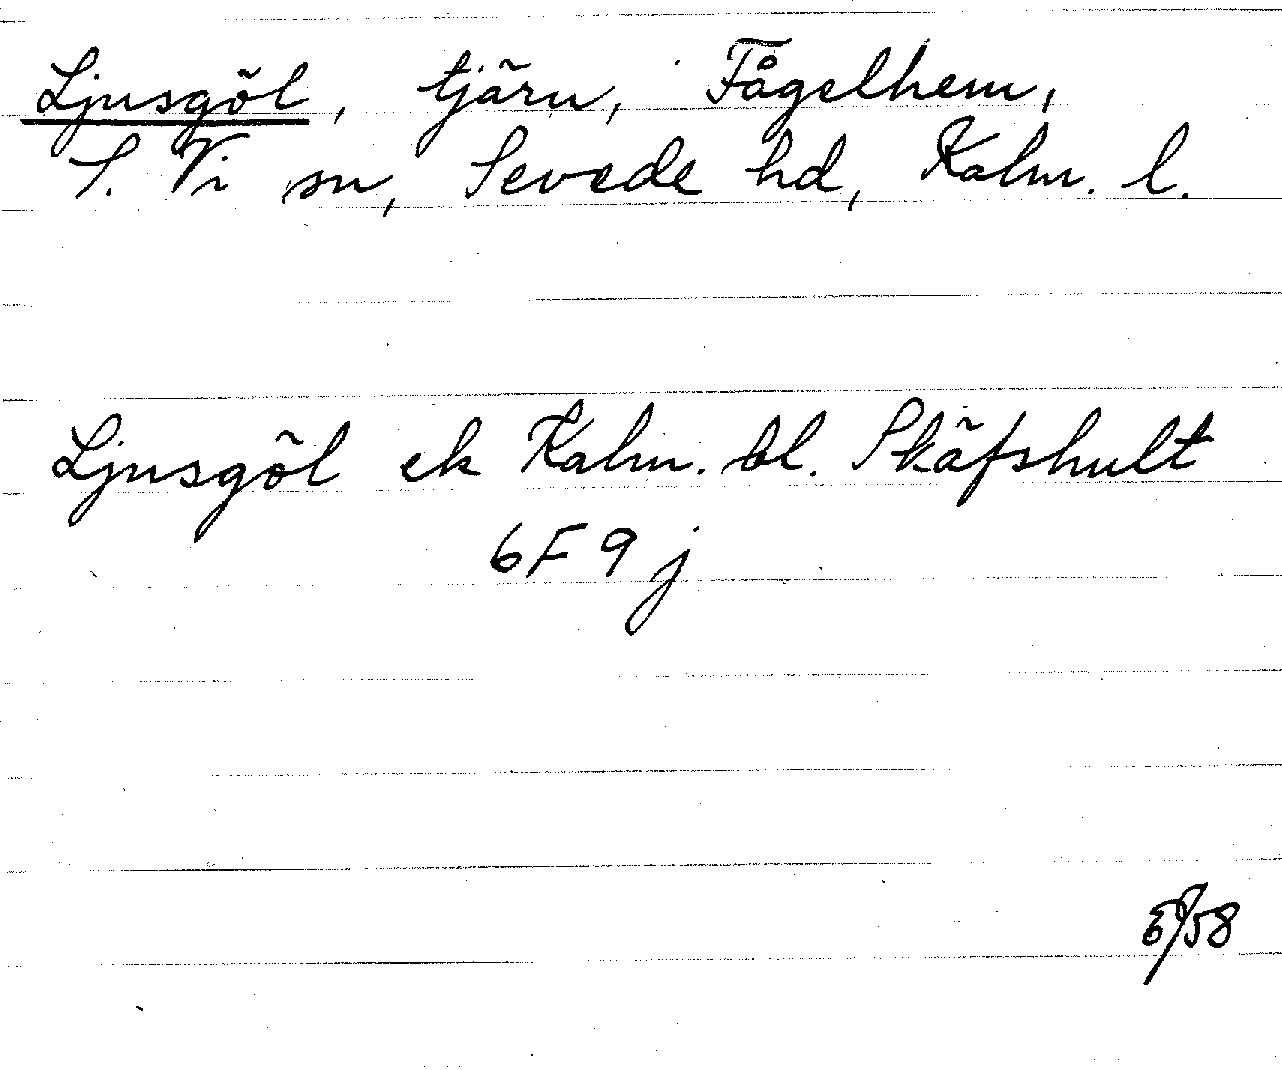 Ljusgöl, tjärn, Fågelhem,
S. Vi sn, Sevede hd, Kalm. l.
Ljusgöl ek Kalm. bl. Skäfshult
6F 9j